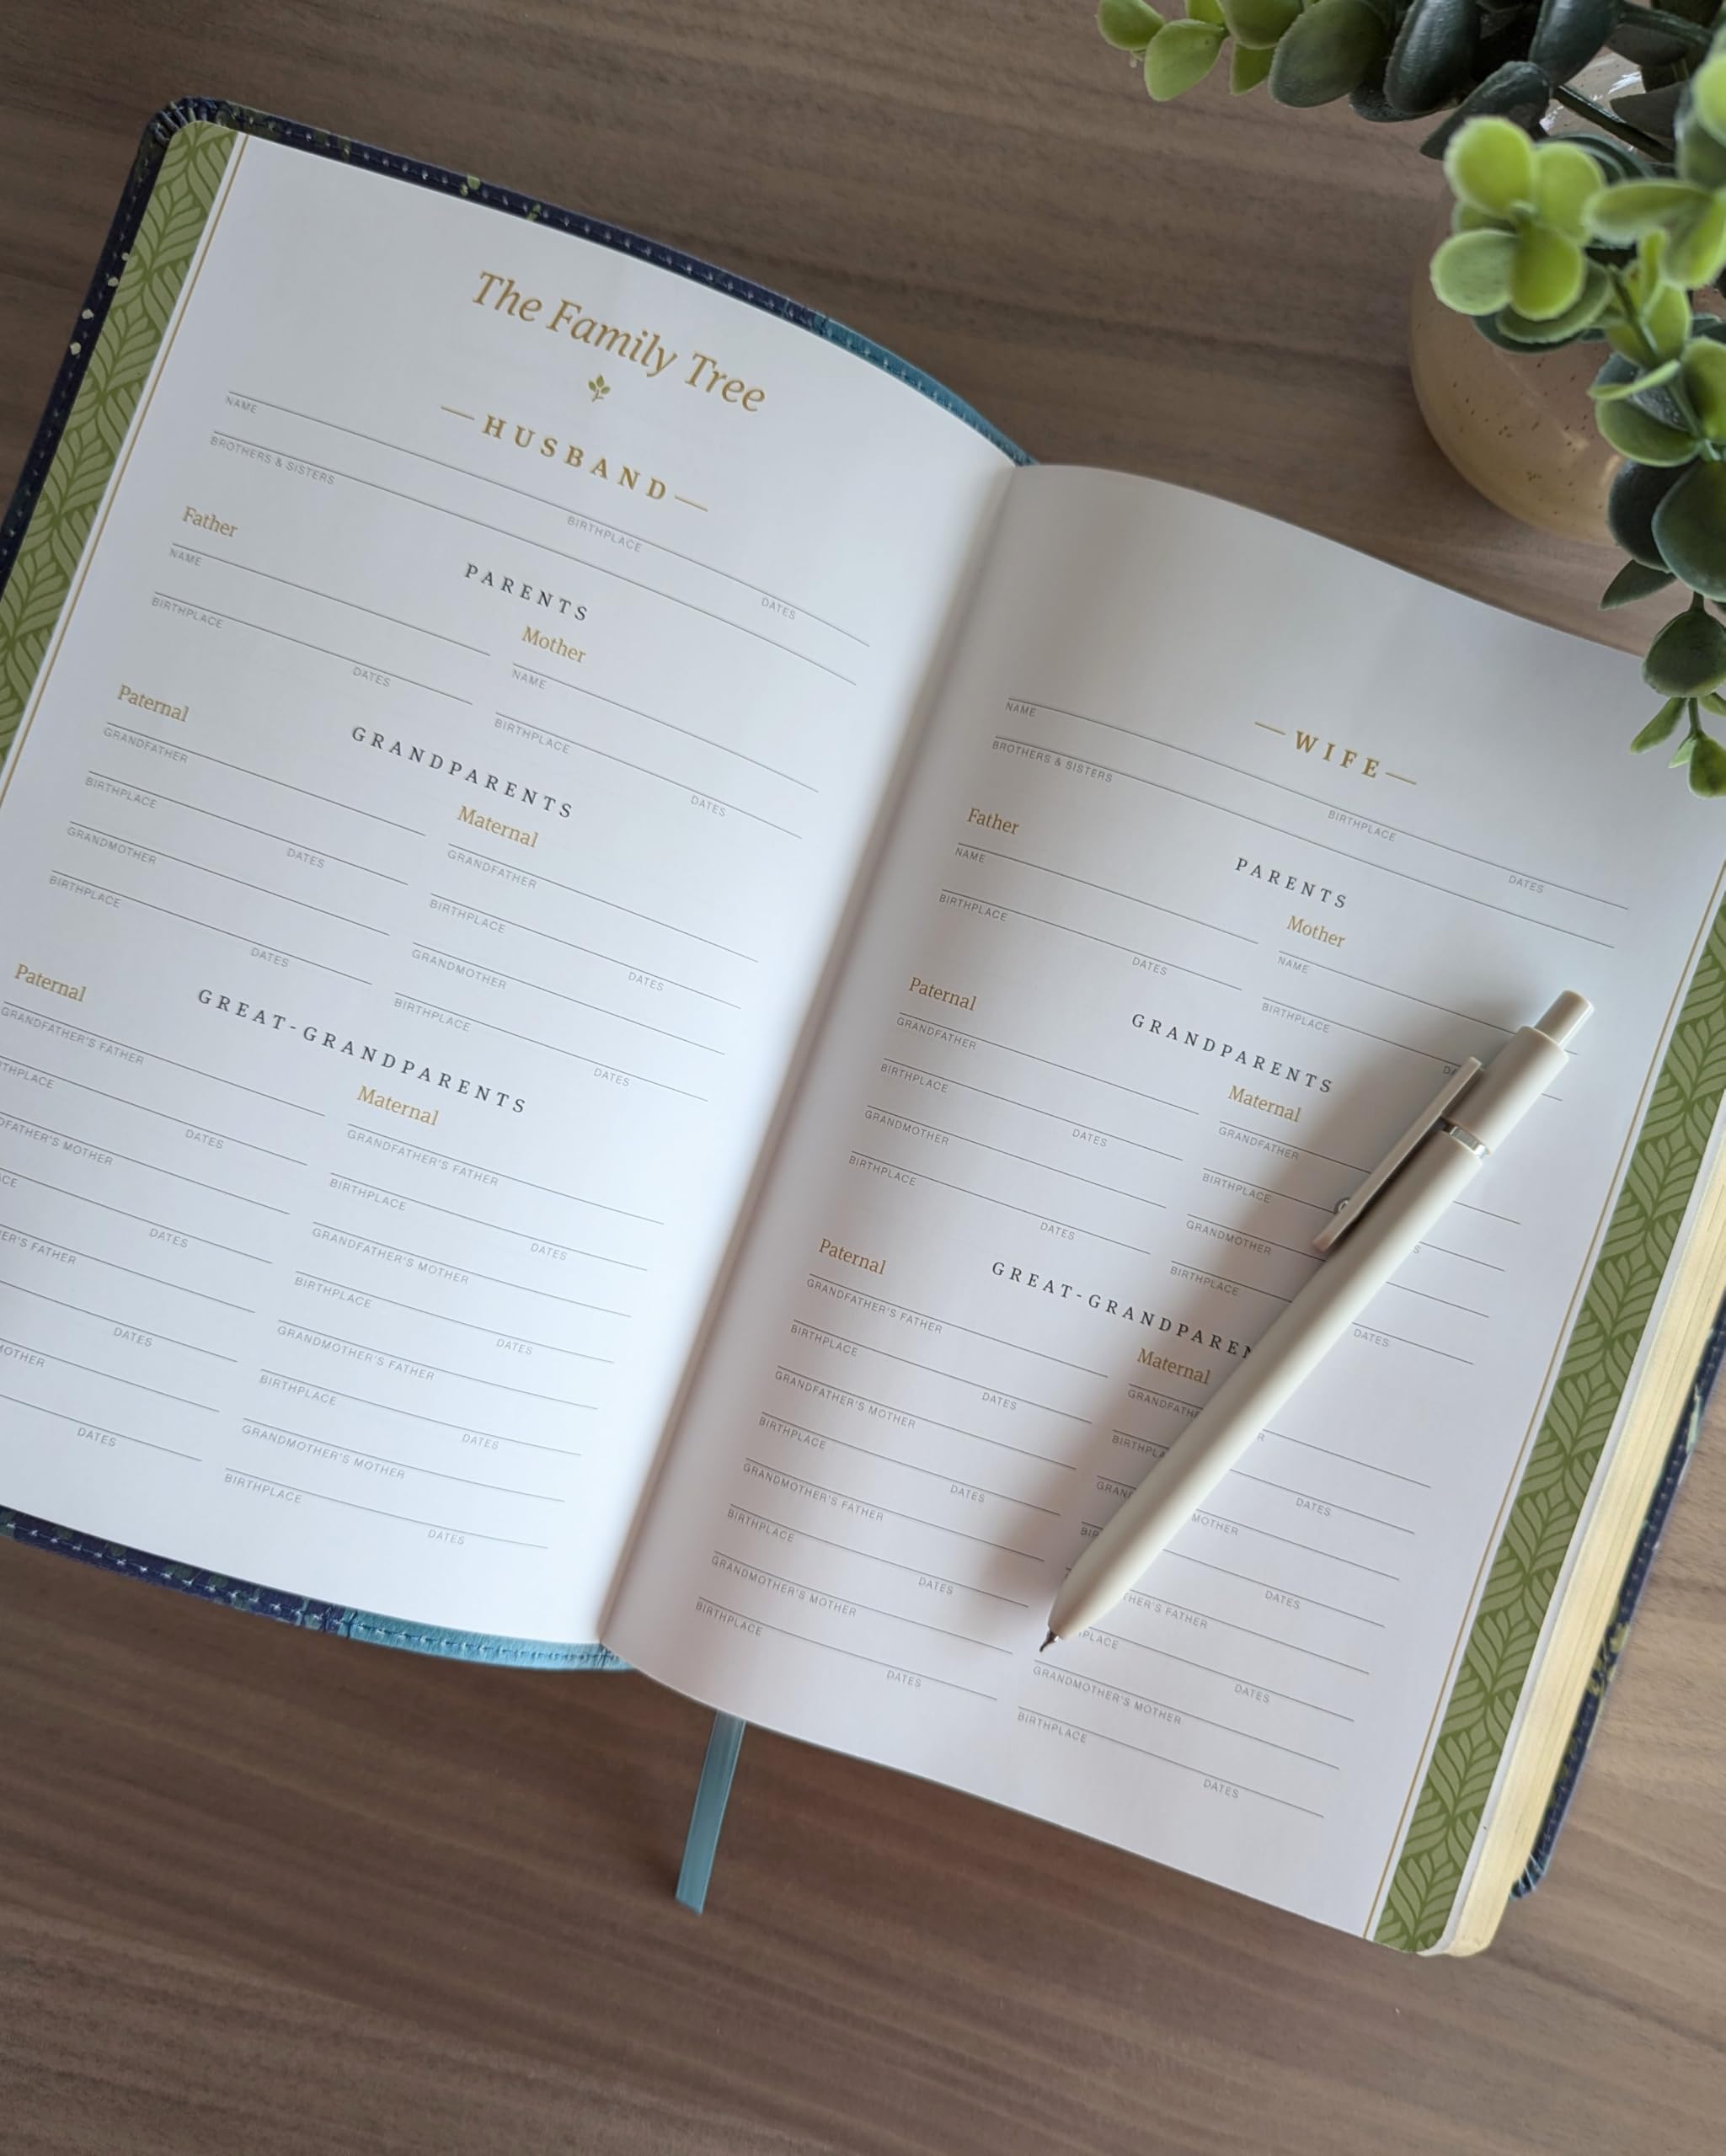 The Family Tree
HUSBAND
NAME BIRTHPLACE DATES
BROTHERS & SISTERS
PARENTS
Father
NAME
BIRTHPLACE DATES
Mother
NAME
BIRTHPLACE DATES
GRANDPARENTS
Paternal
GRANDFATHER
BIRTHPLACE DATES
GRANDMOTHER
BIRTHPLACE DATES
Maternal
GRANDFATHER
BIRTHPLACE DATES
GRANDMOTHER
BIRTHPLACE DATES
GREAT-GRANDPARENTS
Paternal
GRANDFATHER'S FATHER
THPLACE DATES
DFATHER'S MOTHER
CE DATES
ER'S FATHER
DATES
MOTHER
DATES
Maternal
GRANDFATHER'S FATHER
BIRTHPLACE DATES
GRANDFATHER'S MOTHER
BIRTHPLACE DATES
GRANDMOTHER'S FATHER
BIRTHPLACE DATES
GRANDMOTHER'S MOTHER
BIRTHPLACE DATES
WIFE
NAME BIRTHPLACE DATES
BROTHERS & SISTERS
PARENTS
Father
NAME
BIRTHPLACE DATES
Mother
NAME
BIRTHPLACE DA
GRANDPARENTS
Paternal
GRANDFATHER
BIRTHPLACE DATES
GRANDMOTHER
BIRTHPLACE DATES
Maternal
GRANDFATHER
BIRTHPLACE S
GRANDMOTHER
BIRTHPLACE DATES
GREAT-GRANDPAREN
Paternal
GRANDFATHER'S FATHER
BIRTHPLACE DATES
GRANDFATHER'S MOTHER
BIRTHPLACE DATES
GRANDMOTHER'S FATHER
BIRTHPLACE DATES
GRANDMOTHER'S MOTHER
BIRTHPLACE DATES
Maternal
GRANDFATHE R
BIRTHPLA DATES
GRAND MOTHER
BIR DATES
THER'S FATHER
PLACE DATES
GRANDMOTHER'S MOTHER
BIRTHPLACE DATES